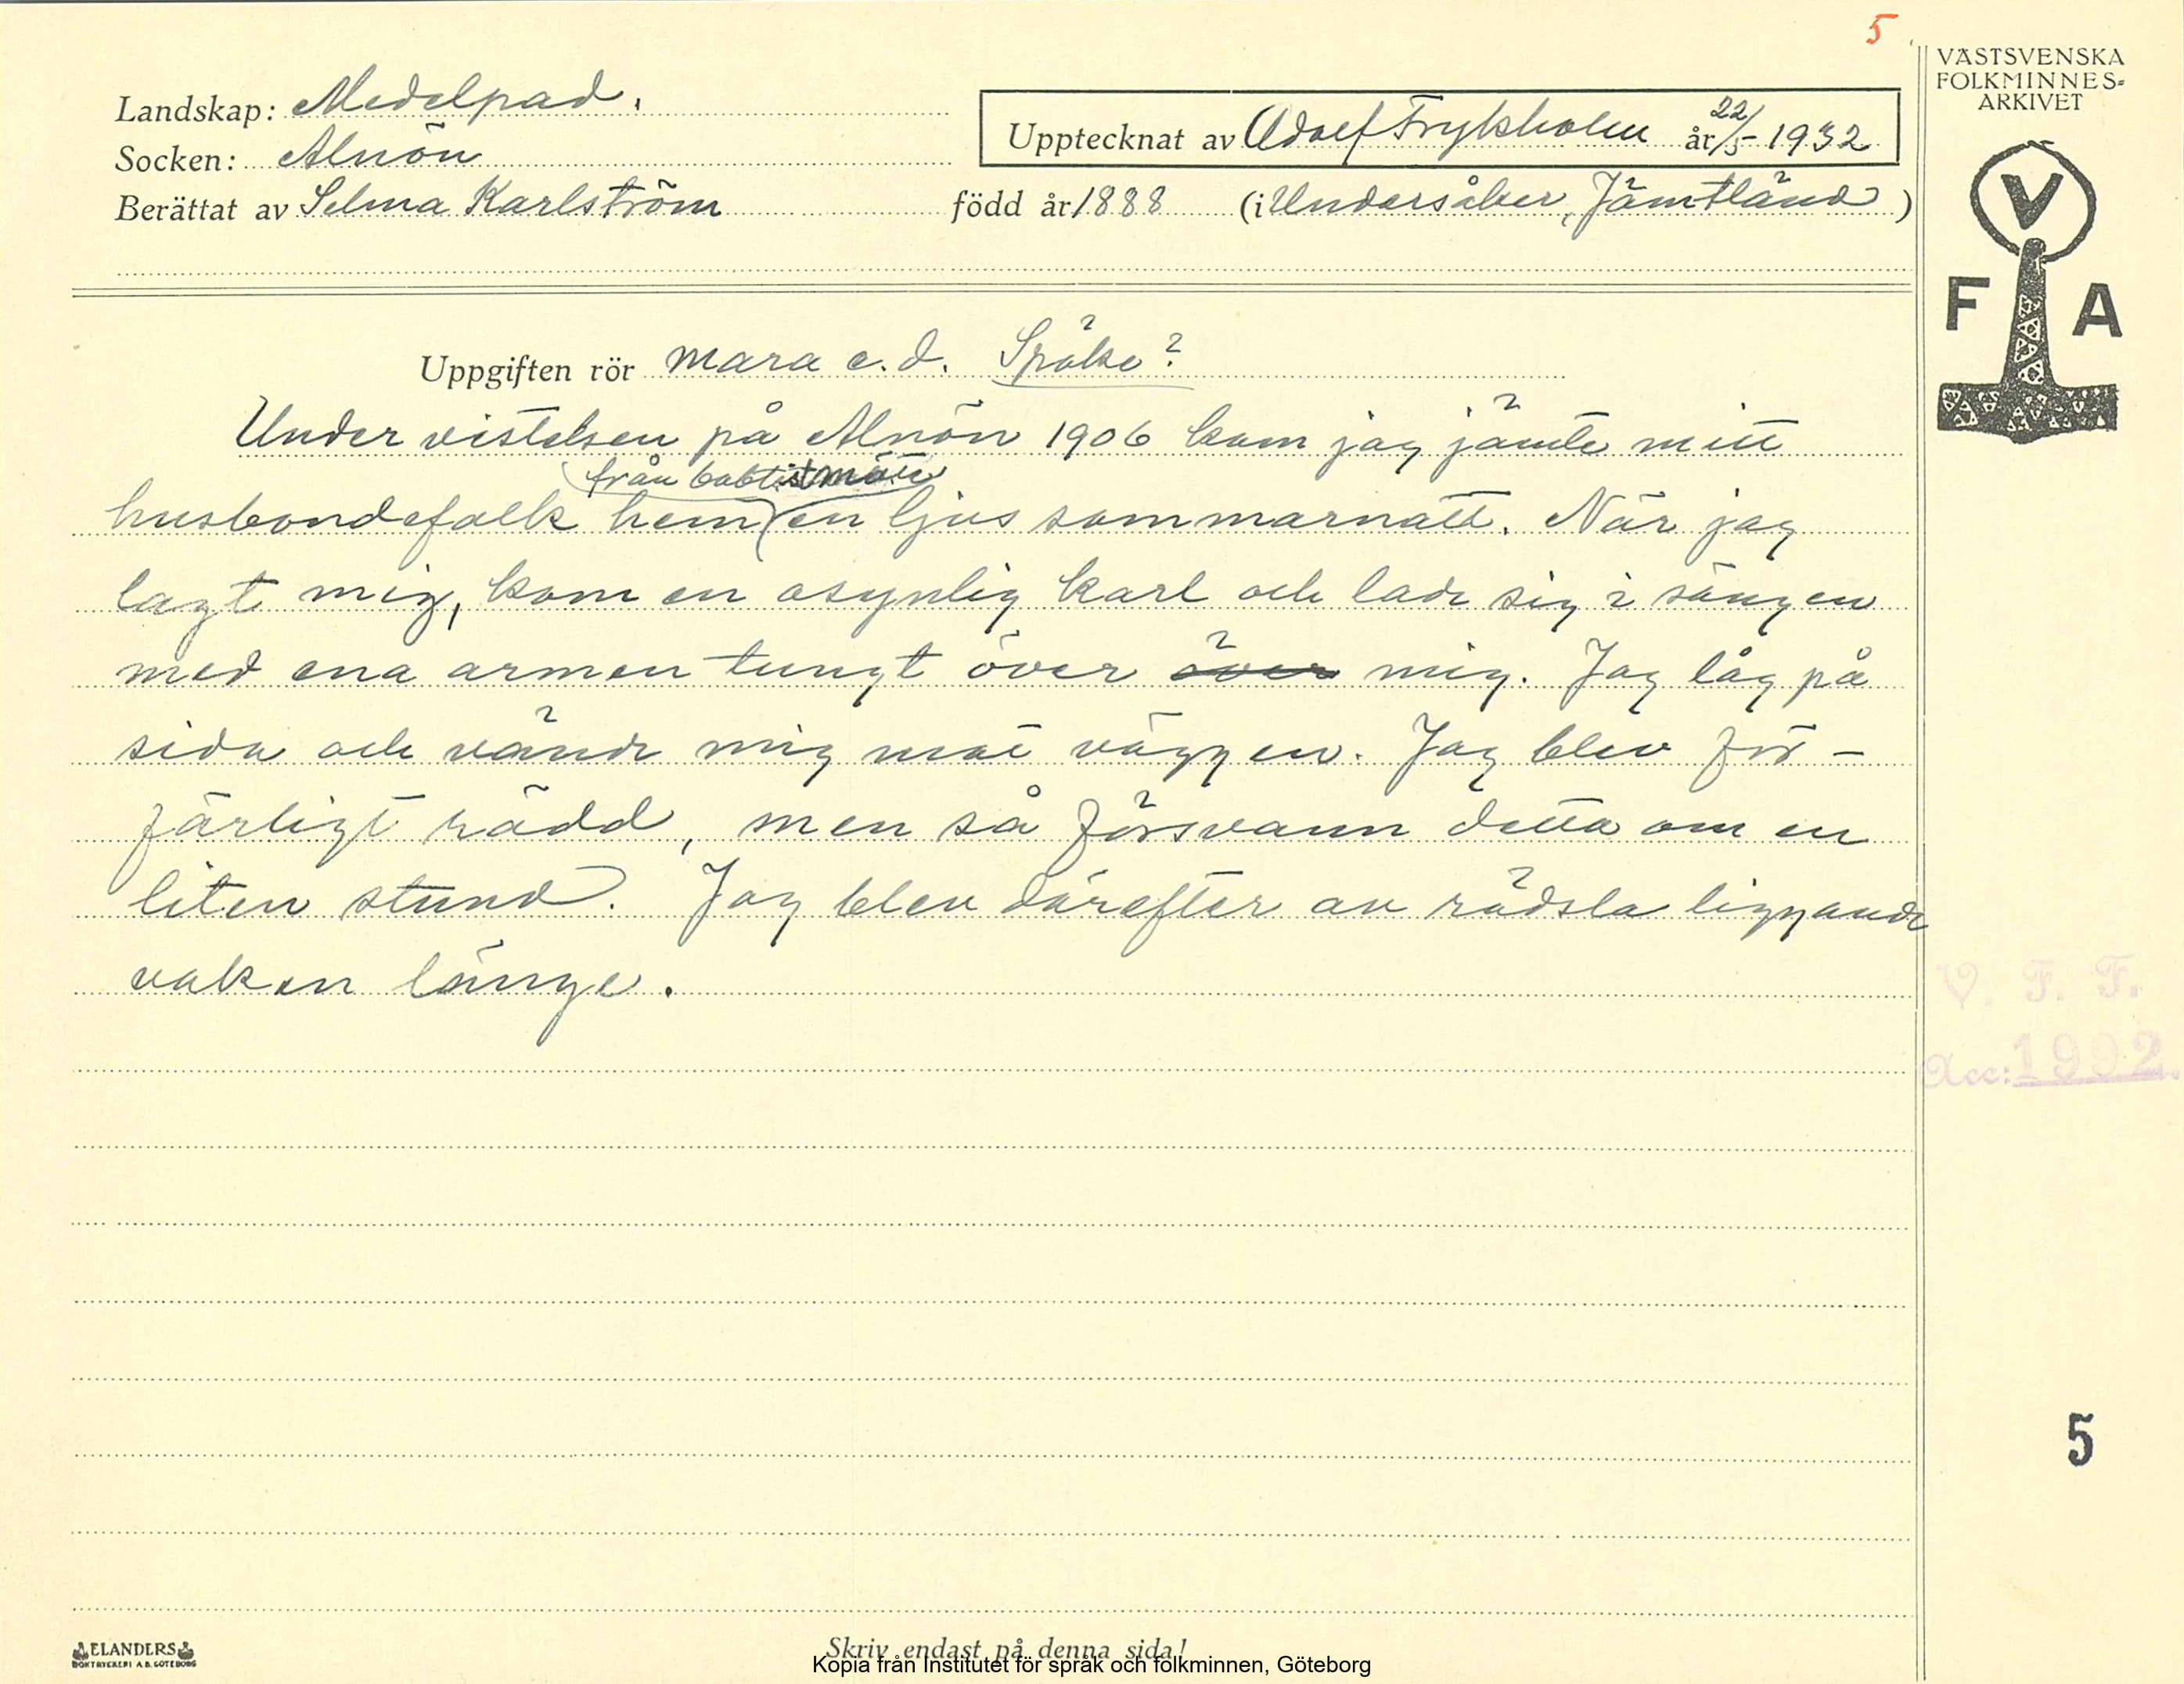 5
VÄSTSVENSKA
FOLKMINNES-
ARKIVET
Landskap: Medelpad.
Socken: Alnön
Upptecknat av Adolf Frykholm år 22/5- 1932
Berättat av Selma Karlström född år 1888 (i Undersåker, Jämtland)
V
F A
Uppgiften rör mara e.d. Spöke?
Under vistelsen på Alnön 1906 kom jag jämte mitt
från babtistmöte
husbondefolk hem en ljus sommarnatt. När jag
lagt mig, kom en osynlig karl och lade sig i sängen
med ena armen tungt över över mig. Jag låg på
sida och vände mig mot väggen. Jag blev för-
färligt rädd, men så försvann detta om en
liten stund. Jag blev därefter av rädsla liggande
vaken länge.
V. F. F.
Acc: 1992.
5
ELANDERS
BOKTRYCKERI A.B. GÖTEBORG
Skriv endast på denna sida!
Kopia från Institutet för språk och folkminnen, Göteborg